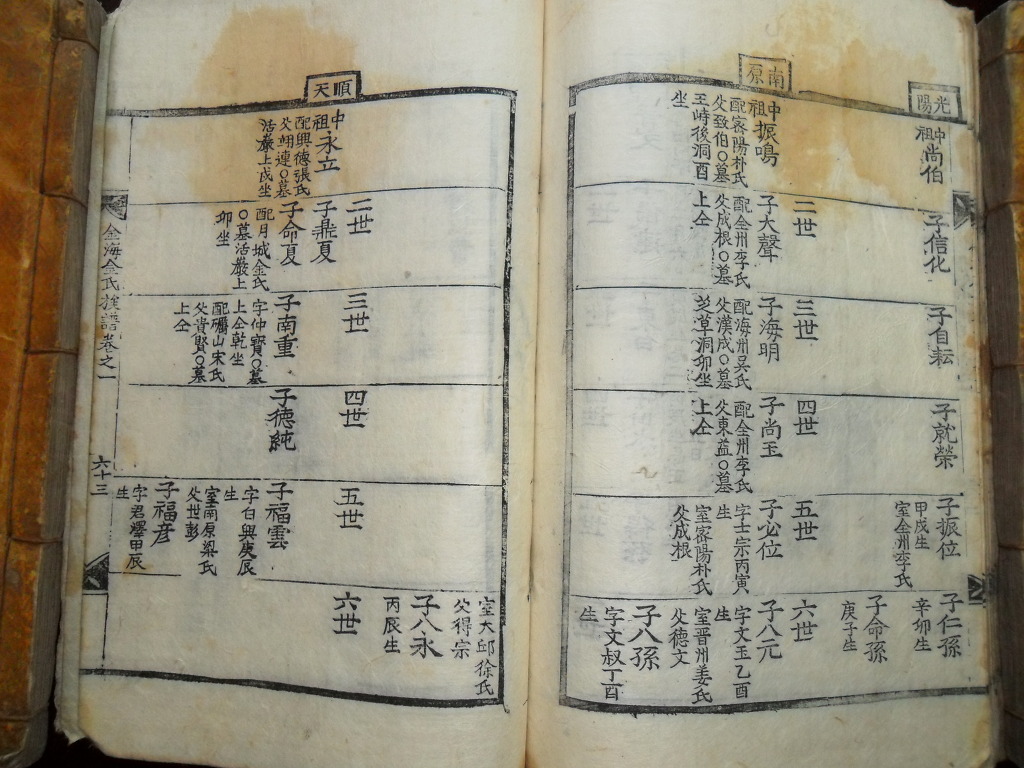 光陽
中祖尚伯
子信化
子自耘
子就榮
子振位
甲戌生
室金州李氏
子仁孫
辛卯生
子命孫
庚子生
南原
中祖振鳴
配密陽朴氏
父致伯○墓
王峙後洞酉
坐
二世
子大聲
配全州李氏
父成根○墓
上仝
三世
子海明
配海州吳氏
父漢成○墓
芝草洞卯坐
四世
子尚玉
配全州李氏
父東益○墓
上仝
五世
子必位
字士宗丙寅
生
室密陽朴氏
父成根
六世
子八元
字文玉乙酉
生
室晋州姜氏
父德文
子八孫
字文叔丁酉
生
室大邱徐氏
父得宗
子八永
丙辰生
順天
中祖永立
配興德張氏
父翊連○墓
活嚴上戌坐
二世
子鼎夏
子命夏
配月城金氏
○墓活嚴上
卯坐
三世
子南重
字仲寶○墓
上仝乾坐
配礪山宋氏
父貴賢○墓
上仝
四世
子德純
五世
子福雲
字白興庚辰
生
室南原梁氏
父世彭
子福彦
字君澤甲辰
生
六世
金海金氏族譜卷之一
六十三